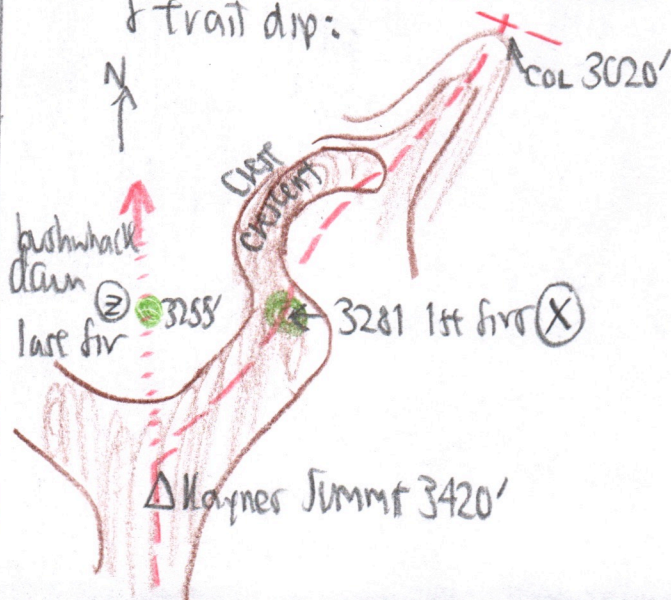 & trail dip:
N
COL 3020'
Crescent
bushwhack
down
Z 3255'
last fir
3281 1st firs X
Haynes Summit 3420'